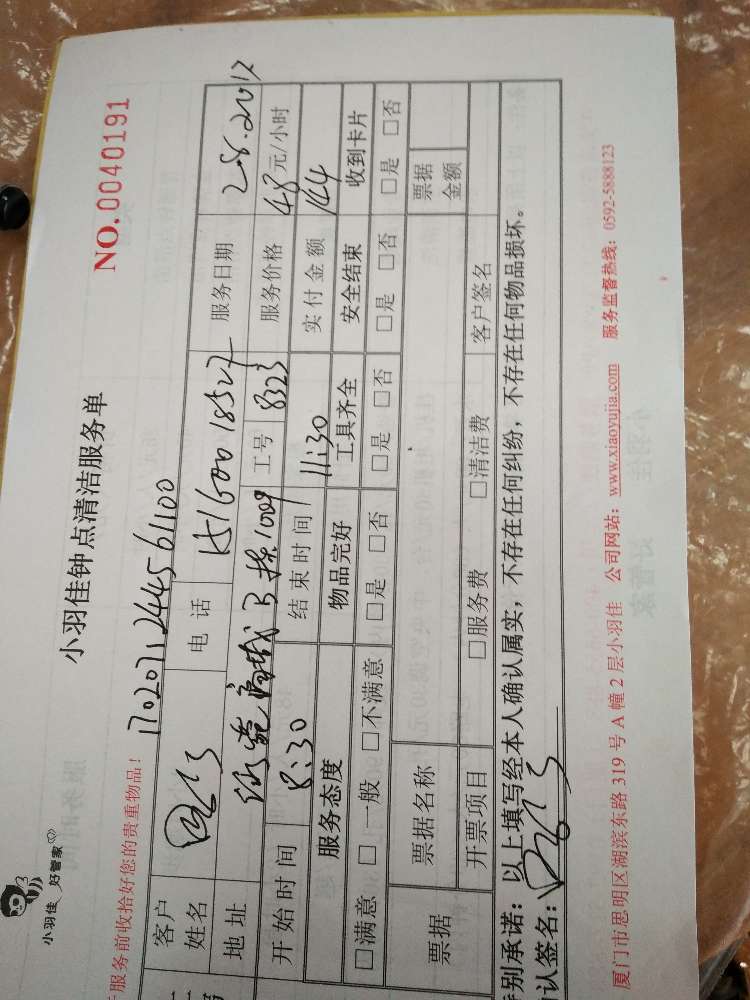 小羽佳 好管家
小羽佳钟点清洁服务单
NO.0040191
服务前收拾好您的贵重物品!
客户姓名
电话
服务日期 28.2017
地址
工号 8323
服务价格 48 元/小时
开始时间 8:30
结束时间 11:30
实付金额 144
服务态度 物品完好 工具齐全 安全结束 收到卡片
□满意 □一般 □不满意 □是 □否 □是 □否 □是 □否 □是 □否
票据 票据名称 票据金额
开票项目 □服务费 □清洁费 客户签名
特别承诺:以上填写经本人确认属实,不存在任何纠纷,不存在任何物品损坏。
确认签名:
厦门市思明区湖滨东路 319 号 A 幢 2 层小羽佳 公司网站:www.xiaoyujia.com 服务监督热线:0592-5888123